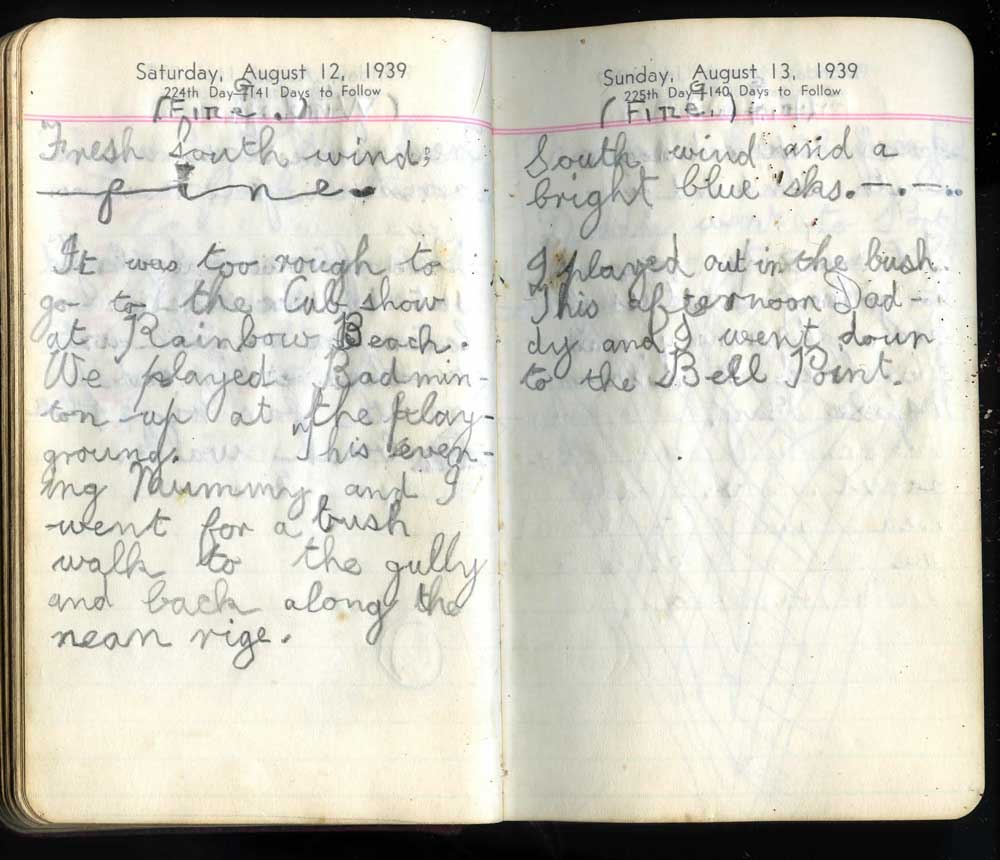 Saturday, August 12, 1939
224th Day 141 Days to Follow
(Fine.)
Fresh South wind;
fine.
It was too rough to
go to the Cub show
at Rainbow Beach.
We played Badmin-
ton up at the play-
ground. This even-
ing Mummy and I
went for a bush
walk to the gully
and back along the
near rige.
Sunday, August 13, 1939
225th Day 140 Days to Follow
(Fine.)
South wind and a
bright blue sky.—.—..
I played out in the bush.
This afternoon Dad-
dy and I went down
to the Bell Point.